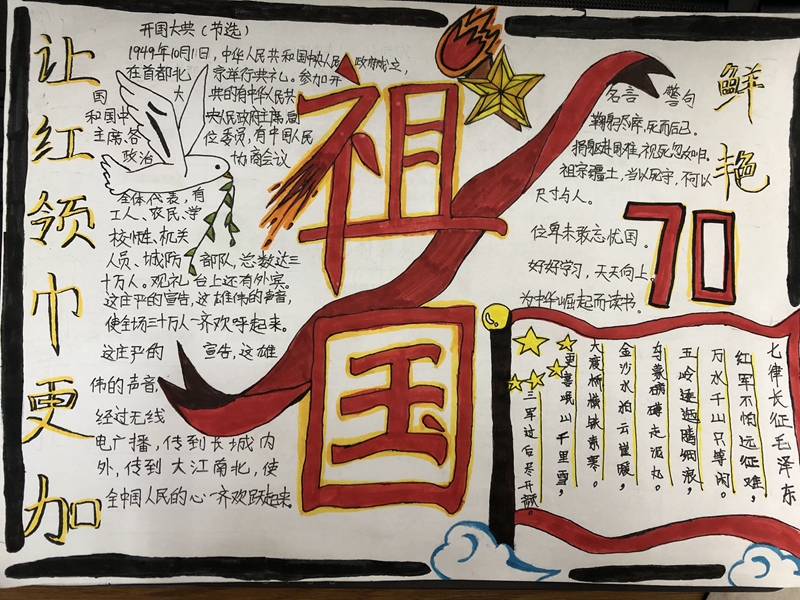 让红领巾更加
鲜艳
祖国
开国大典(节选)
1949年10月1日,中华人民共和国中央人民政府成立,
在首都北京举行典礼。参加开
国大典的有中华人民共
和国中央人民政府主席、副
主席、各位委员,有中国人民
政治协商会议
全体代表,有
工人、农民、学
校师生、机关
人员、城防部队,总数达三
十万人。观礼台上还有外宾。
这庄严的宣告,这雄伟的声音,
使全场三十万人一齐欢呼起来。
这庄严的宣告,这雄
伟的声音,
经过无线
电广播,传到长城内
外,传到大江南北,使
全中国人民的心一齐欢跃起来。
名言警句
鞠躬尽瘁,死而后已。
捐躯赴国难,视死忽如归。
祖宗疆土,当以死守,不可以
尺寸与人。
位卑未敢忘忧国。
好好学习,天天向上。
为中华崛起而读书。
70
七律长征毛泽东
红军不怕远征难,
万水千山只等闲。
五岭逶迤腾细浪,
乌蒙磅礴走泥丸。
金沙水拍云崖暖,
大渡桥横铁索寒。
更喜岷山千里雪,
三军过后尽开颜。